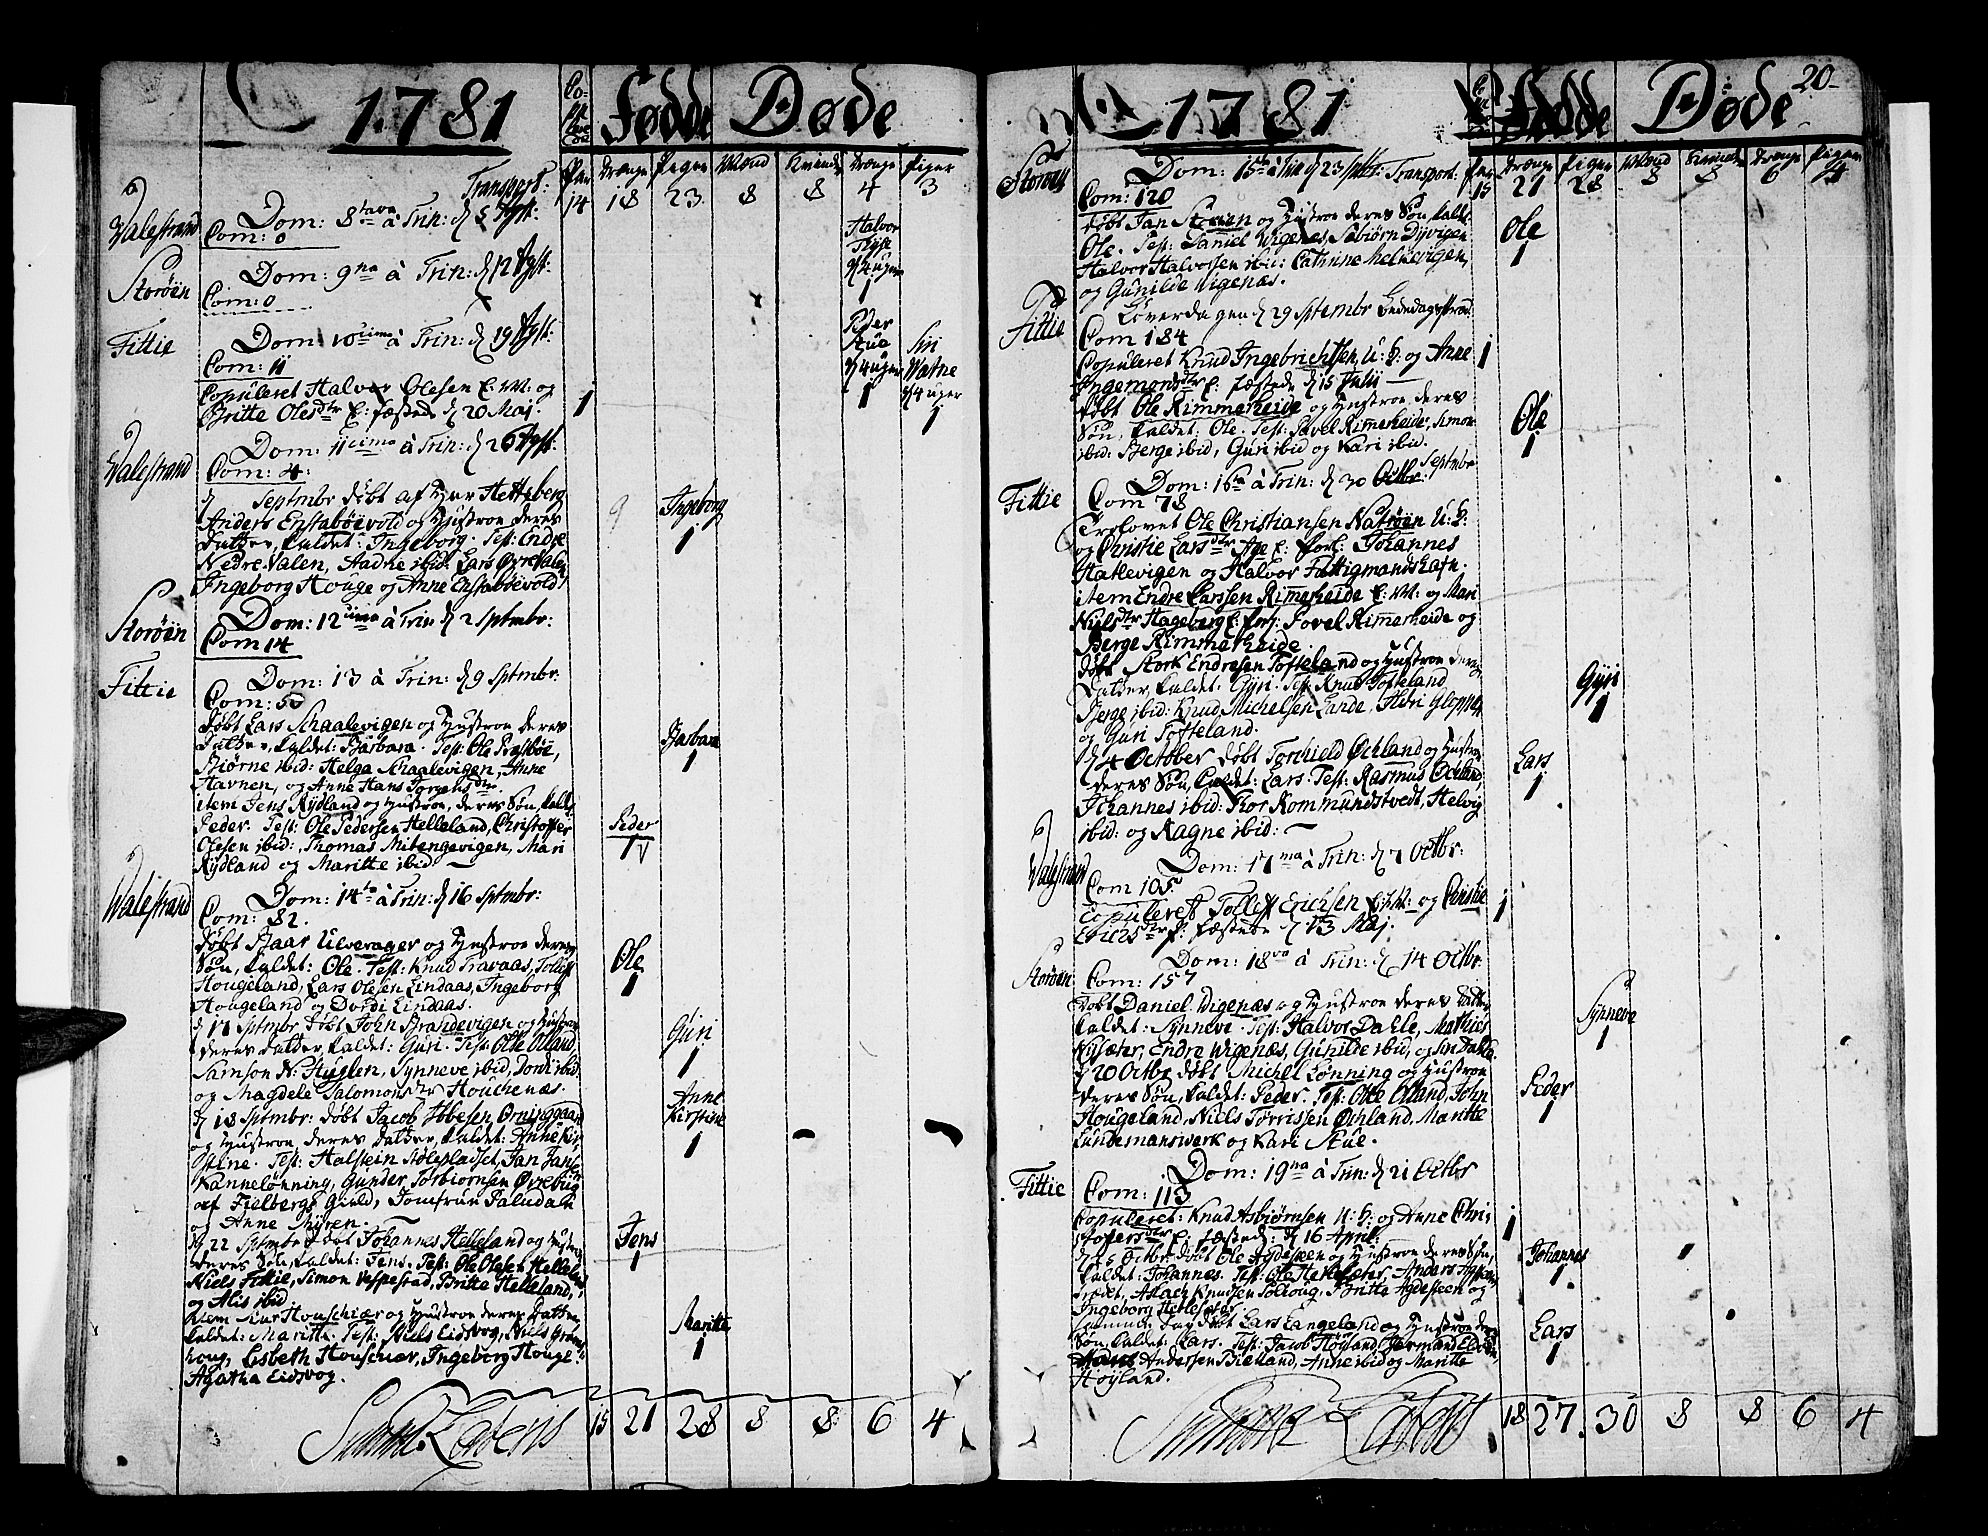 1781
Copulerede
Fødde
Døde
Transport:
Par Drenge Piger Mænd Kvinder Drenge Piger
14 18 23 8 8 4 3
Valestrand
Dom: 8tava à Trin: d 5 Agst:
Com: 0
Halvor
3/4 uger
1
Storøen
Dom: 9na à Trin: d 12 Agst:
Com: 0
Fittie
Dom: 10cima à Trin: d 19 Agst:
Com: 11
Copuleret Halvor Olesen E: M: og
Britte Olesdtr E: fæsted d 20 Maj. 1
Peder
Stue
3/4 uger
1
Siri
Vatne
3/4 uger
1
Valestrand
Dom: 11cima à Trin: d 26 Agst:
Com: 4:
d Septmbr døbt af Hr Hettzberg
Anders Enstabøevold og Hustroe deres
Datter, kaldet: Ingeborg. Test: Endre
Nedre Valen, Aadne ibid: Lars Øvre Valen
Ingeborg Houge og Anne Enstabøevold.
Ingeborg
1
Storøen
Dom: 12cima à Trin: d 2 Sptmbr:
Com 14
Fittie
Dom: 13 à Trin: d 9 Sptmbr:
Com: 50
døbt Lars Skaalevigen og Hustroe deres
Datter, kaldet: Barbara. Test: Ole
Biørne ibid: Helga Skaalevigen, Anne
Havnen, og Anne Hans Jørgensdtr.
item Jens Rydland og Hustroe, deres Søn, kaldet
Peder. Test: Ole Pedersen Helleland, Christoffer
Olesen ibid:, Thomas Mitengevigen, Mari
Rydland og Maritte ibid:
Barbara
1
Peder
1
Valestrand
Dom: 14ta à Trin: d 16 Sptmbr:
Com: 82.
døbt Baar Ulverager og Hustroe deres
Søn, kaldet: Ole. Test: Knud Travaas, Tollef
Hougeland, Lars Olesen Lindaas, Ingeborg
Hougeland og Dordi Lindaas.
Ole
1
d 17 Sptmbr døbt John Brandevigen og Hustroe
deres Datter, kaldet: Guri. Test: Otte Olland
Samson N: Huglen, Synneve ibid, Dordi ibid:
og Magdele Salomonsdtr Houchenæs.
Guri
1
d 18 Sptmbr: døbt Jacob Ibbesen Orninggaard
og Hustroe, deres Datter, kaldet: Anne Kir
stine. Test: Halstein Stølepladset, Jan Jansen
Kannelønning, Gunder Torbiornsen Øvrebüg
af Fielbergs Gield, Jomfrue Paludan
og Anne Myren.
Anne
Kirstine
1
d 22 Sptmbr døbt Johannes Helleland og Hustroe
deres Søn, kaldet: Jens. Test: Ole Olesen Helleland,
Niels Fittie, Simon Vespestad, Britte Helleland,
og Alis ibid
Jens
1
item Siur Houschiær og Hustroe deres Datter,
kaldet: Maritte. Test: Niels Eidsvog, Niels
houg, Lisbeth Houschier, Ingeborg Houge
Agatha Eidsvog.
Maritte
1
15 21 28 8 8 6 4
1781
20
Fødde
Døde
Storøen
Dom: 15ta à Trin d 23 Sptbr: Transport.
Par Drenge Piger Mænd Kvinder Drenge Piger
15 21 28 8 8 6 4
Com: 120
døbt Jan Støeien og Hustroe deres Søn, kaldet
Ole. Test: Daniel Wigenæs, Sebiørn Dyvigen
Halvor Halvorsen ibid: Cathrine Melkevigen,
og Gunilde Wigenæs.
Ole
1
Fittie
Løverdagen d 29 Sptembr
Com 184
Copuleret Knud Ingebrichtsen, U: K: og Anne
Ingemonsdtr E: fæstede d 15 Julii
1
døbt Ole Rimmereide og Hustroe deres
Søn, kaldet: Ole. Test: Povel Rimereide, Simon
ibid: Berge ibid, Guri ibid og Kari ibid.
Ole
1
Fittie
Dom: 16ta à Trin: d 30 Septmbr
Com 78
Trolovet Ole Christiansen Natrøen U: K:
og Christie Larsdtr Age E: forl: Johannes
Haklevigen og Halvor Fattigmandshafn.
item Endre Larssen Rimereide E: M: og Mari
Nielsdtr Hageberg E: forl: Povel Rimereide og
Berge Rimmereide.
døbt Stork Endresen Tofteland og Hustroe deres
Datter, kaldet: Gyri. Test: Knud Tofteland
Berge ibid: Knud Michelsen Lande, Aldri Gleppen
og Guri Tofteland.
Gyri
1
d 4 October døbt Torchield Øchland og Hustroe
deres Søn, kaldet: Lars. Test: Rasmus Øchland,
Johannes ibid: Thor Rommundstvedt, Helvig
ibid: og Ragne ibid:
Lars
1
Valestrand
Dom: 17ma à Trin: d 7 Octbr:
Com 105.
Copuleret Tollef Erichsen E: M: og Christie
Erichsdtr E: fæstede d 13 Maj.
1
Storøen
Dom: 18va à Trin: d 14 Octbr.
Com: 157
døbt Daniel Wigenæs og Hustroe deres Datter
kaldet: Synneve. Test: Halvor Dahle, Mathies
Nisæter, Endre Wigenæs, Gunilde ibid, og Siri Dahle.
Synneve
1
d 20 Octbr døbt Michel Lønning og Hustroe
deres Søn, kaldet: Peder. Test: Otte Olland, John
Hougeland, Niels Torrissen Øchland, Maritte
Lundemanswerk og Kari Stue.
Peder
1
Fittie
Dom: 19na à Trin: d 21 Octbr
Com: 113
Copuleret: Knud Asbiørnsen U: K: og Anne Chri,
stofersdtr E: fæstede: d 16 April:
1
Octbr døbt Ole Agdesteen og Hustroe deres Søn,
kaldet: Johannes. Test: Ole Hetlesæter, Anders
Aslach Knudsen Solkoug, Britte Agdesteen og
Ingeborg Hetlesæter.
Johannes
1
samme Dag døbt Lars Langeland og Hustroe deres
Søn, kaldet: Lars. Test: Jacob Høyland,
Andersen Fielland, Anne ibid og Maritte
Høyland.
Lars
1
18 27 30 8 8 6 4